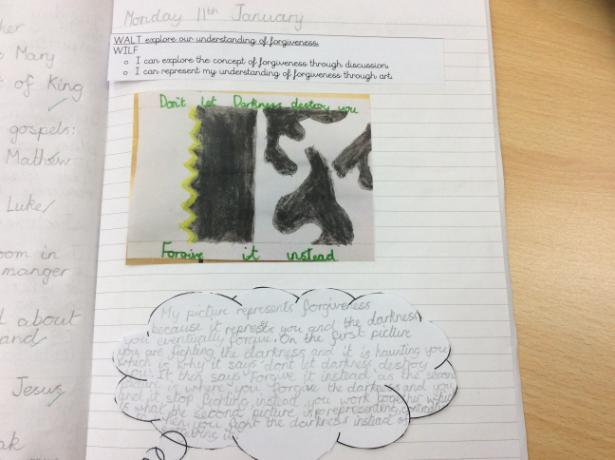 her
Mary
t of King
gospels:
Mathew
Luke
oom in
manger
about
and
Jesus
eak
Monday 11th January
WALT explore our understanding of forgiveness.
WILF
I can explore the concept of forgiveness through discussion.
I can represent my understanding of forgiveness through art.
Don't let Darkness destroy you
Forgive it instead
My picture represents forgiveness
because it represts you and the darkness
you eventually forgive. On the first picture
you are fighting the darkness and it is haunting you
which is why it says don't let darkness destroy
you it then says Forgive it instead as the
picture is where you forgive the darkness and you
and it stop fighting instead you work together which
is what the second picture is representing
when you fight the darkness instead of